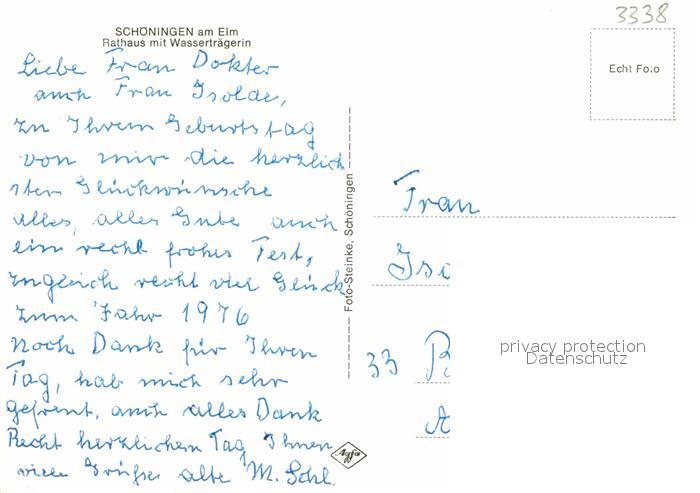 3338
SCHÖNINGEN am Elm
Rathaus mit Wasserträgerin
Echt Foto
Liebe Frau Dokter
auch Frau Isolde,
zu Ihrem Geburtstag
von mir die herzlich
sten Glückwünsche
alles, alles Gute auch
ein recht frohes Fest,
zugleich recht viel Glück
zum Jahr 1976
Noch Dank für Ihren
Tag, hab mich sehr
gefreut, auch alles Dank
Recht herzlichen Tag Ihnen
viele Grüße alte M. Schl.
Foto-Steinke, Schöningen
Agfa
Frau
Iso
33
privacy protection
Datenschutz